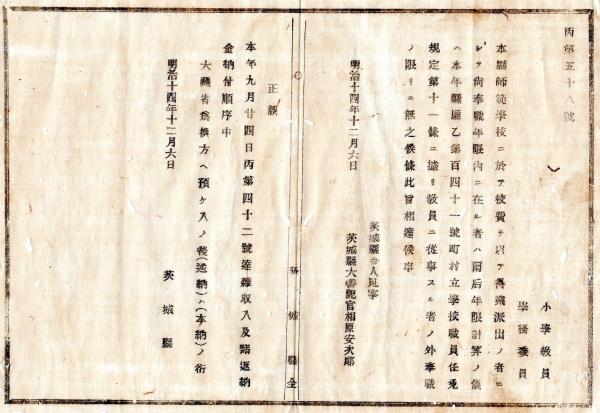 丙第五十八號
小學教員
學務委員
本縣師範學校ニ於テ校費ヲ以テ傳業派出ノ者ニ
シテ尚奉職年限內ニ在ル者ハ爾后年限計算ノ儀
ハ本年縣甲乙第百四十一號町村立學校職員任免
規定第十一條ニ據リ教員ニ從事スル者ノ外奉職
ノ限リニ無之候條此旨相達候事
茨城縣令人見寧
明治十四年十二月六日
茨城縣大書記官相原安次郎
茨城縣令
正誤
本年九月廿四日丙第四十二號達雜收入及諸返納
金納付順序中
大藏省爲換方ヘ預ケ入ノ後(送納)ハ(本納)ノ衍
明治十四年十二月六日
茨城縣